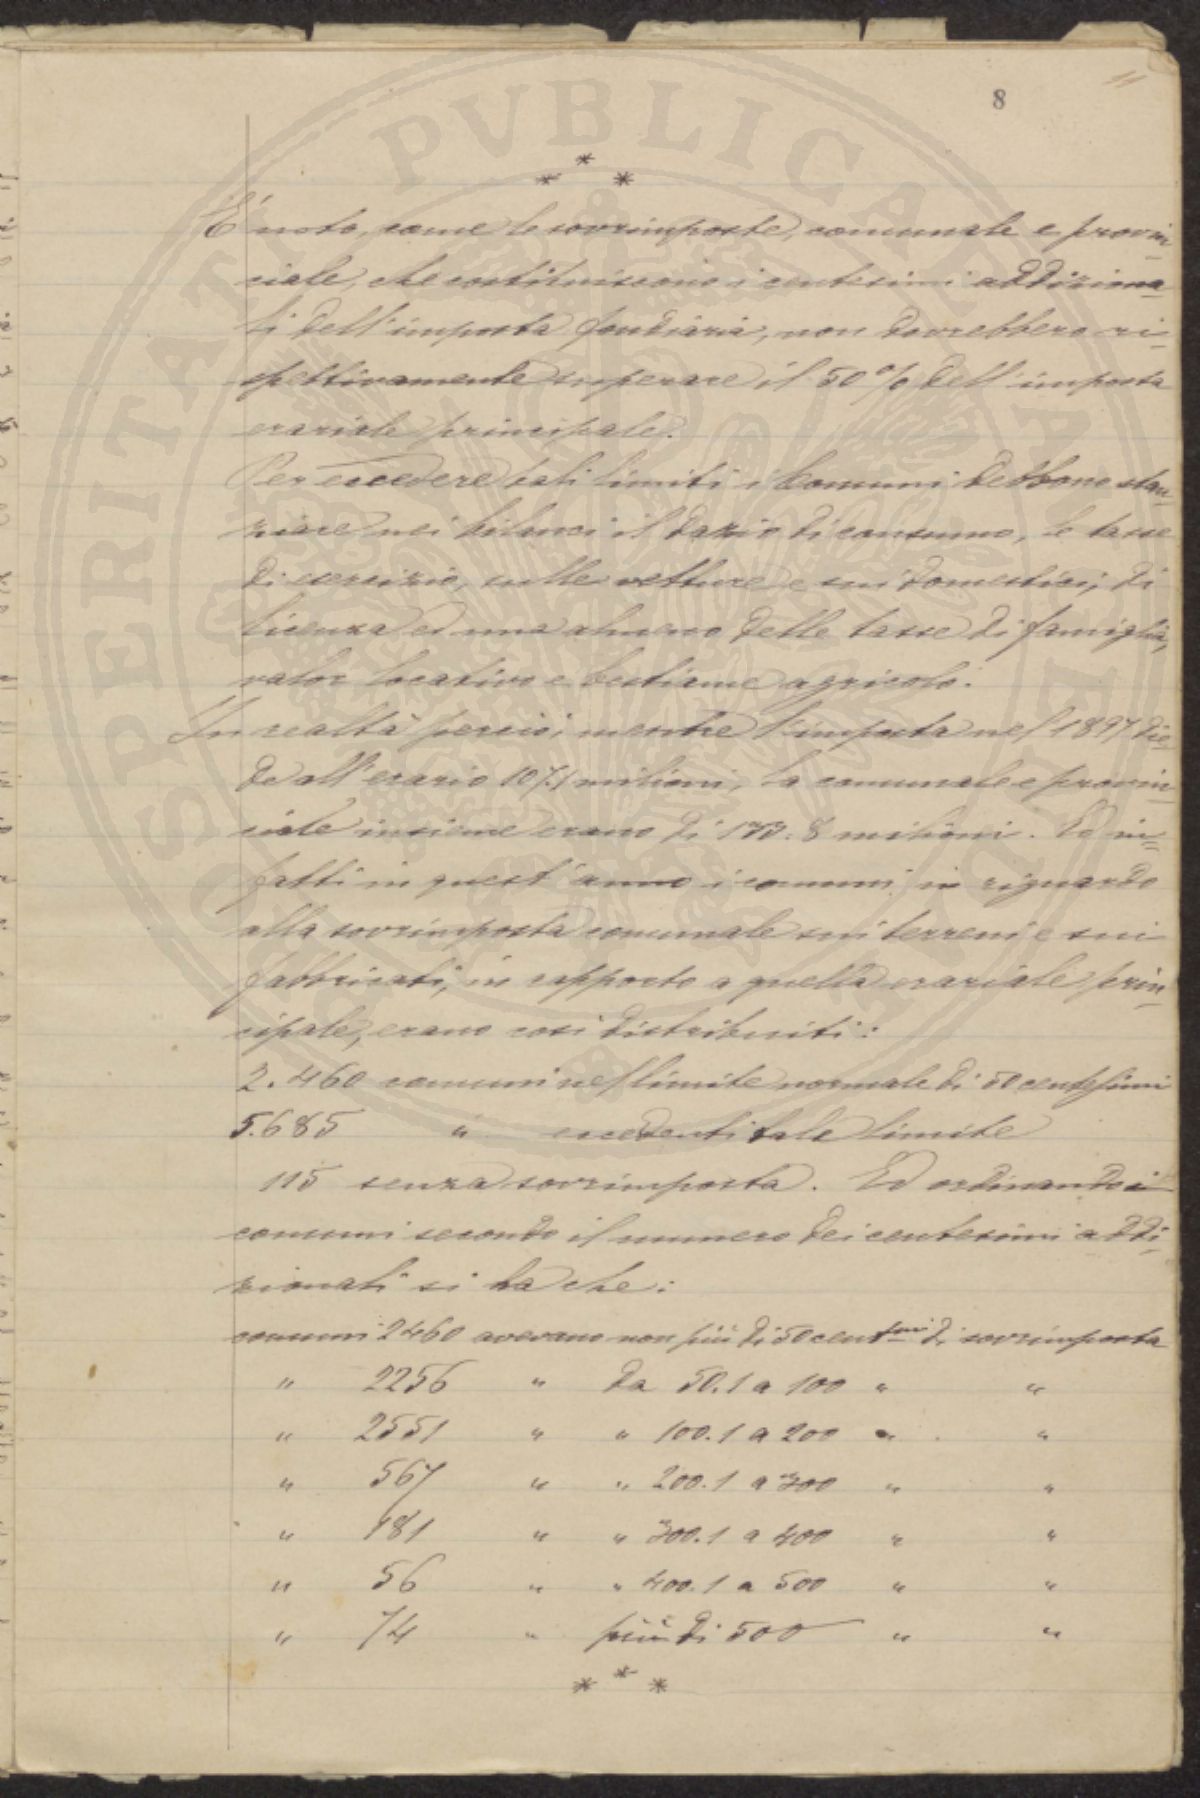 11
8
* * *
È noto, come le sovrimposte, comunale e provin-
ciale, che costituiscono i centesimi addiziona-
li dell'imposta fondiaria, non dovrebbero ri-
spettivamente superare il 50% dell'imposta
erariale principale.
Per eccedere tali limiti i Comuni debbono stan-
ziare nei bilanci il dazio di consumo, le tasse
di esercizio, sulle vetture e sui domestici, di
licenza ed una almeno delle tasse di famiglia,
valor locativo e bestiame agricolo.
In realtà perciò, mentre l'imposta nel 1897 die-
de all'erario 107.1 milioni, la comunale e provin-
ciale insieme erano di 133.8 milioni. Ed in-
fatti in quest'anno i comuni, in riguardo
alla sovrimposta comunale sui terreni e sui
fabbricati, in rapporto a quella erariale prin-
cipale, erano così distribuiti:
2.460 comuni nel limite normale di 50 centesimi
5.685 " eccedenti tale limite
115 senza sovrimposta. Ed ordinando i
comuni secondo il numero dei centesimi addi-
zionali si ha che:
comuni 2460 avevano non più di 50 centsmi di sovrimposta
" 2256 " da 50.1 a 100 " "
" 2551 " " 100.1 a 200 " "
" 567 " " 200.1 a 300 " "
" 181 " " 300.1 a 400 " "
" 56 " " 400.1 a 500 " "
" 74 " più di 500 " "
* * *
PUBLICAE
PROSPERITATI